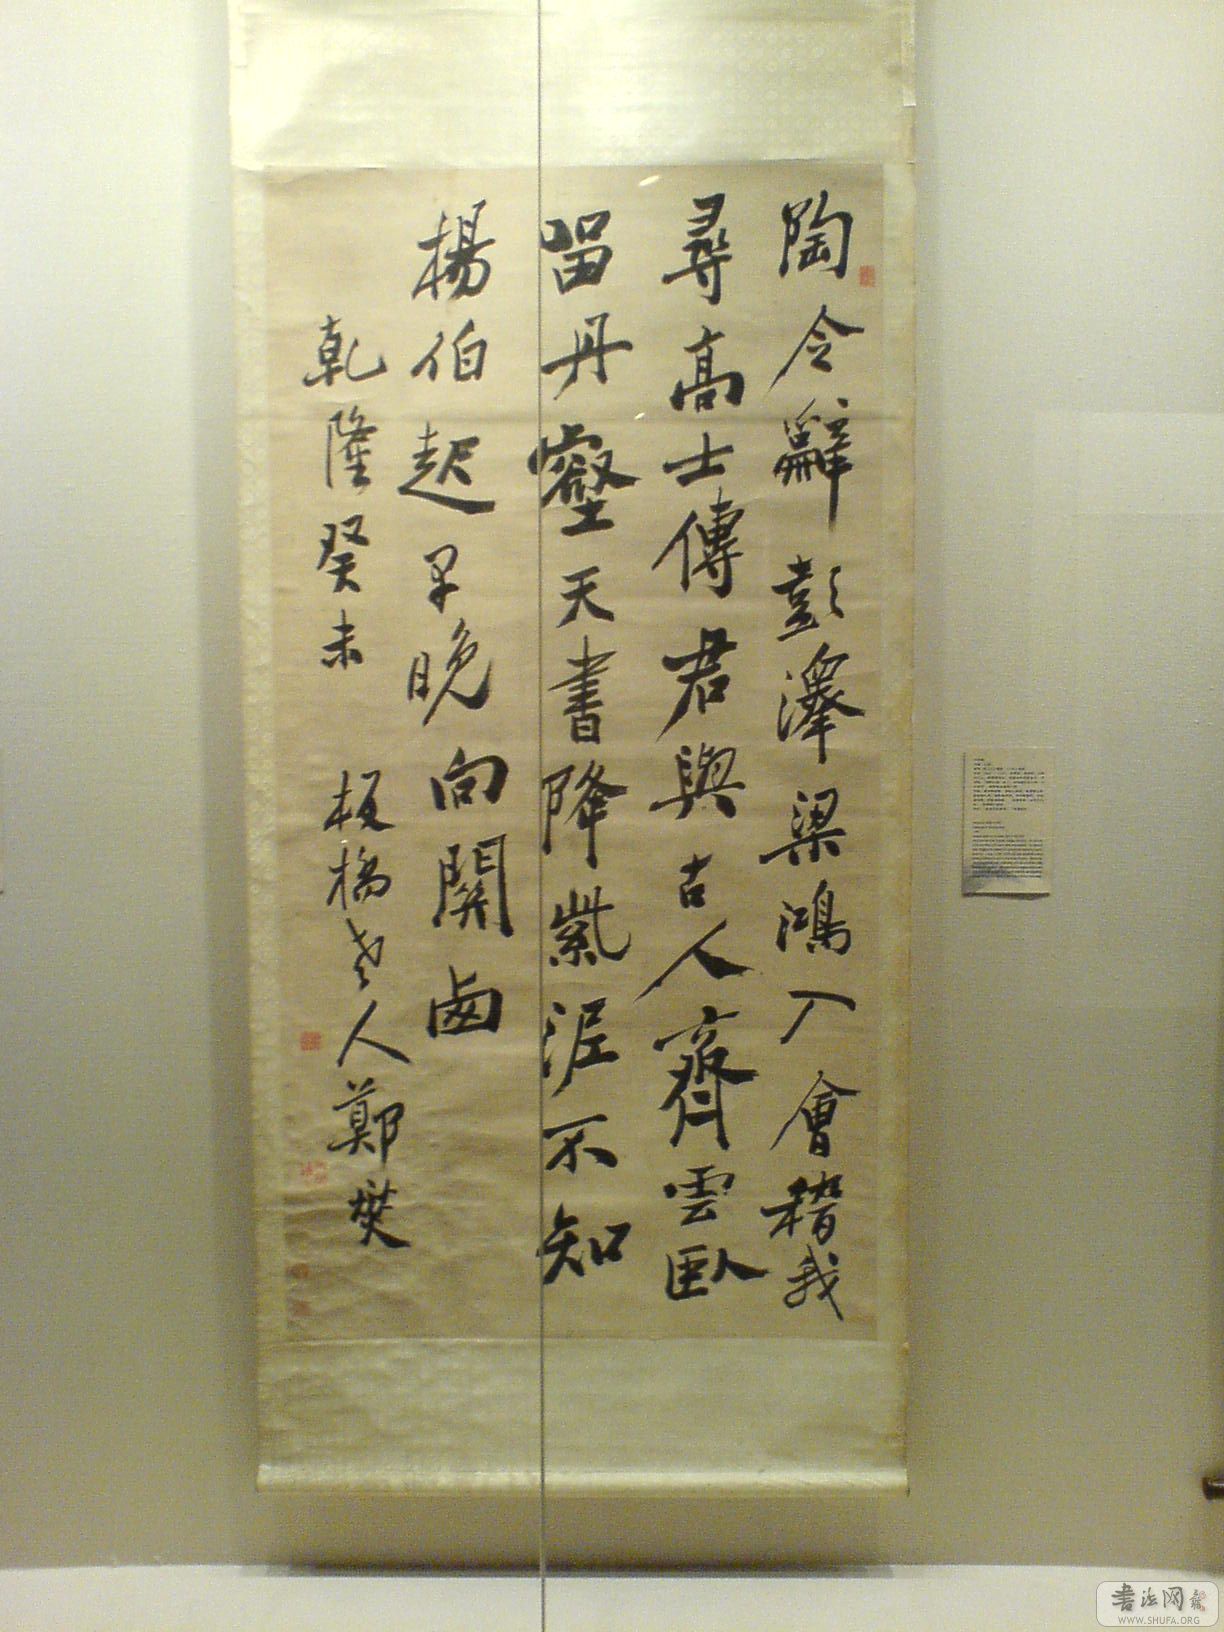 陶令辭彭澤梁鴻入會稽我
尋高士傳君與古人齊雲臥
留丹壑天書降紫泥不知
楊伯起早晚向關西
乾隆癸未
板橋老人鄭燮
書法网
WWW.SHUFA.ORG